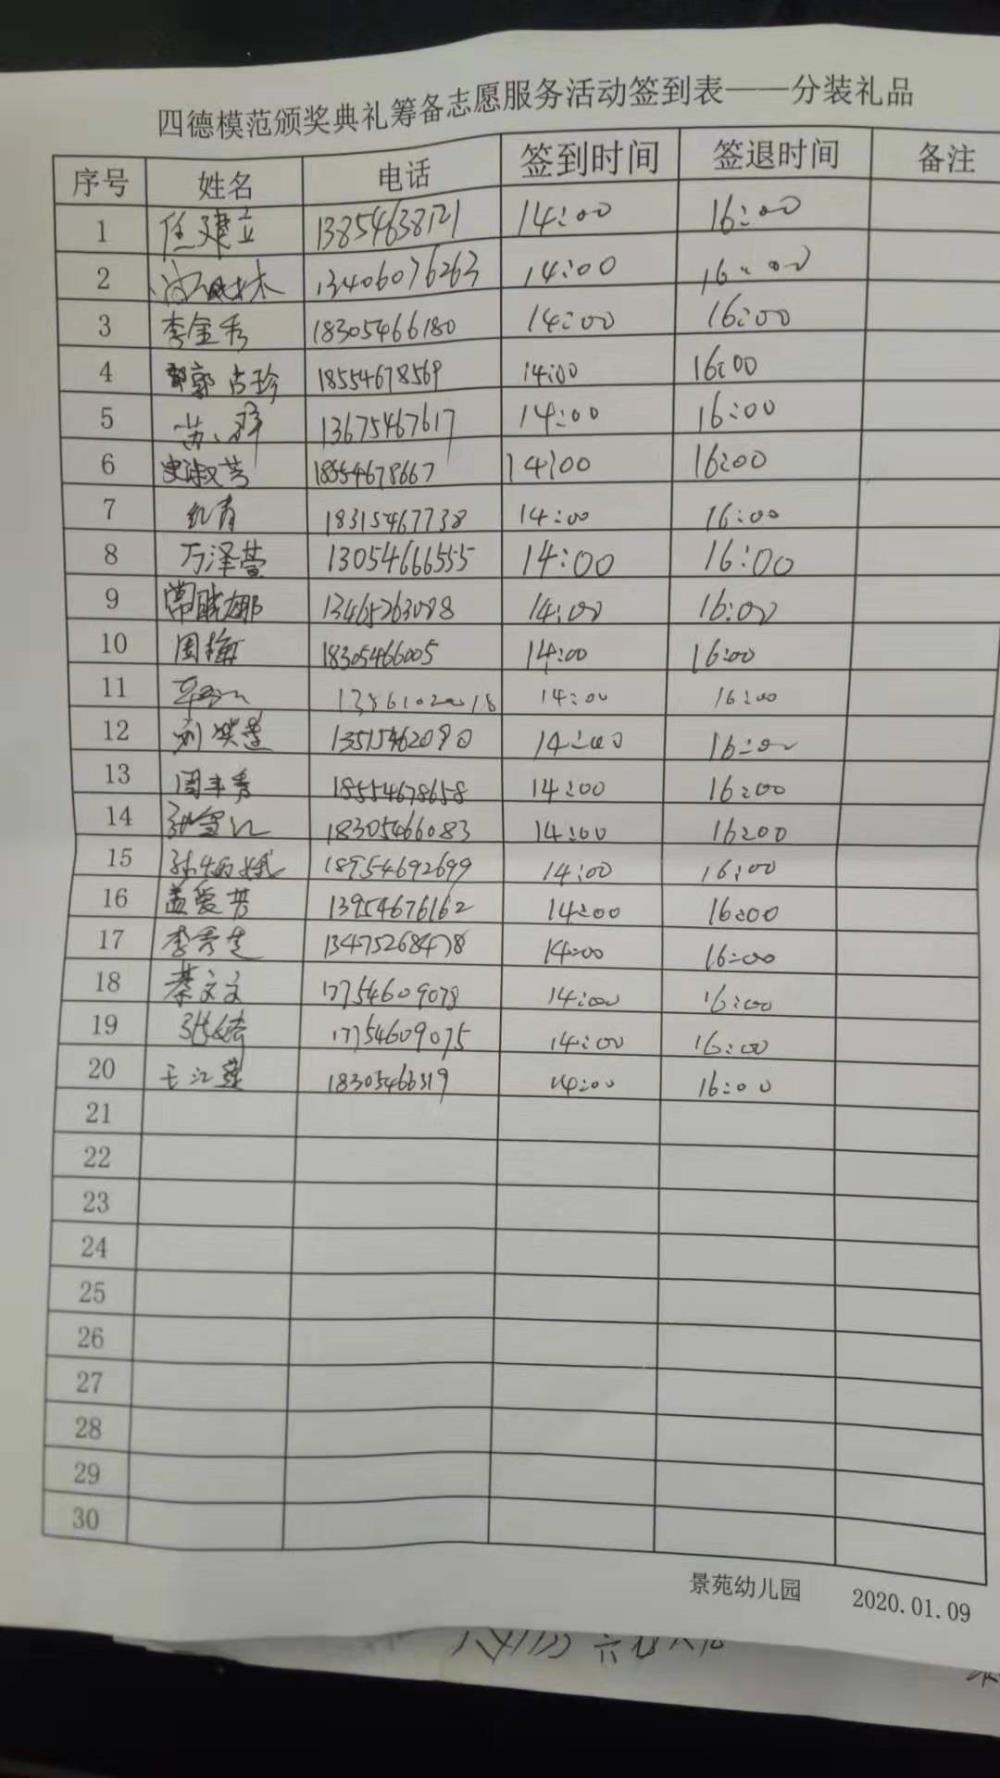 四德模范颁奖典礼筹备志愿服务活动签到表——分装礼品
序号 姓名 电话 签到时间 签退时间 备注
1 任建立 13854638121 14:00 16:00
2 13406076263 14:00 16:00
3 李金秀 18305466180 14:00 16:00
4 郭占珍 18554678569 14:00 16:00
5 13675467617 14:00 16:00
6 史淑芳 18554678667 14:00 16:00
7 纪青 18315467738 14:00 16:00
8 万泽萱 13054666555 14:00 16:00
9 常晓娜 13465263088 14:00 16:00
10 周梅 18305466005 14:00 16:00
11 14:00 16:00
12 13515462090 14:00 16:00
13 周丰秀 18554678658 14:00 16:00
14 18305466083 14:00 16:00
15 18954692699 14:00 16:00
16 盖爱芳 13954676162 14:00 16:00
17 13475268478 14:00 16:00
18 蔡文文 17754609078 14:00 16:00
19 张婷 17754609075 14:00 16:00
20 王江燕 18305466319 14:00 16:00
21
22
23
24
25
26
27
28
29
30
景苑幼儿园 2020.01.09